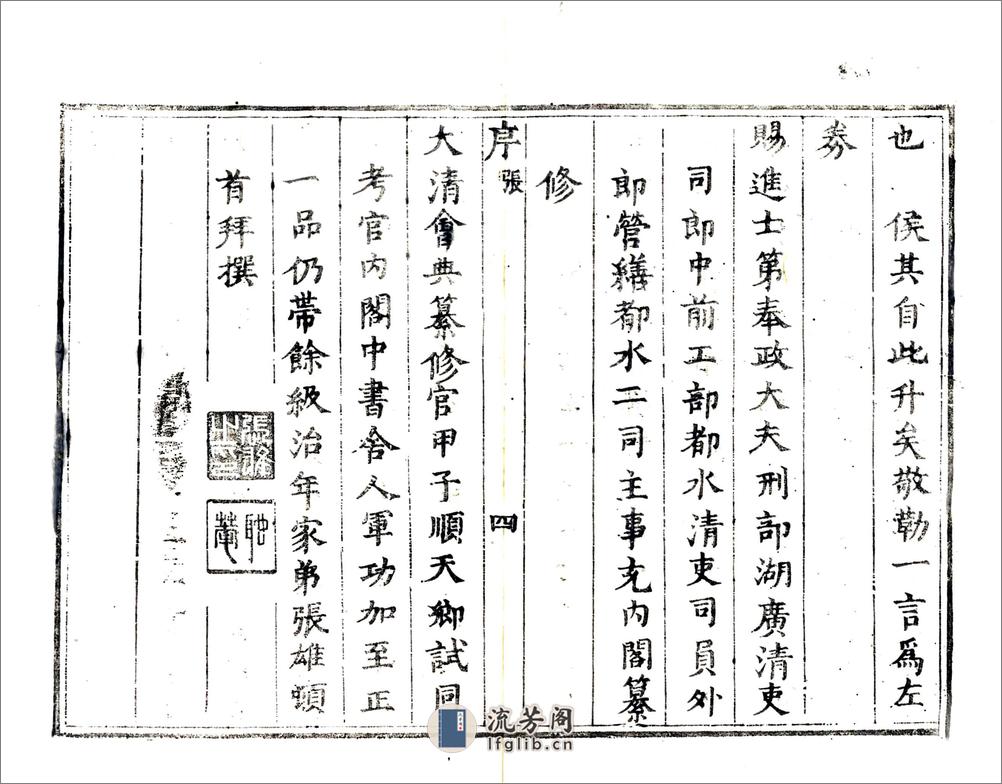 也　侯其自此升矣敬勒一言爲左
券
賜進士第奉政大夫刑部湖廣清吏
司郎中前工部都水清吏司員外
郎管繕都水二司主事充內閣纂
修
序 張 四
大清會典纂修官甲子順天鄉試同
考官內閣中書舍人軍功加至正
一品仍帶餘級治年家弟張雄頓
首拜撰
流芳阁
lfglib.cn